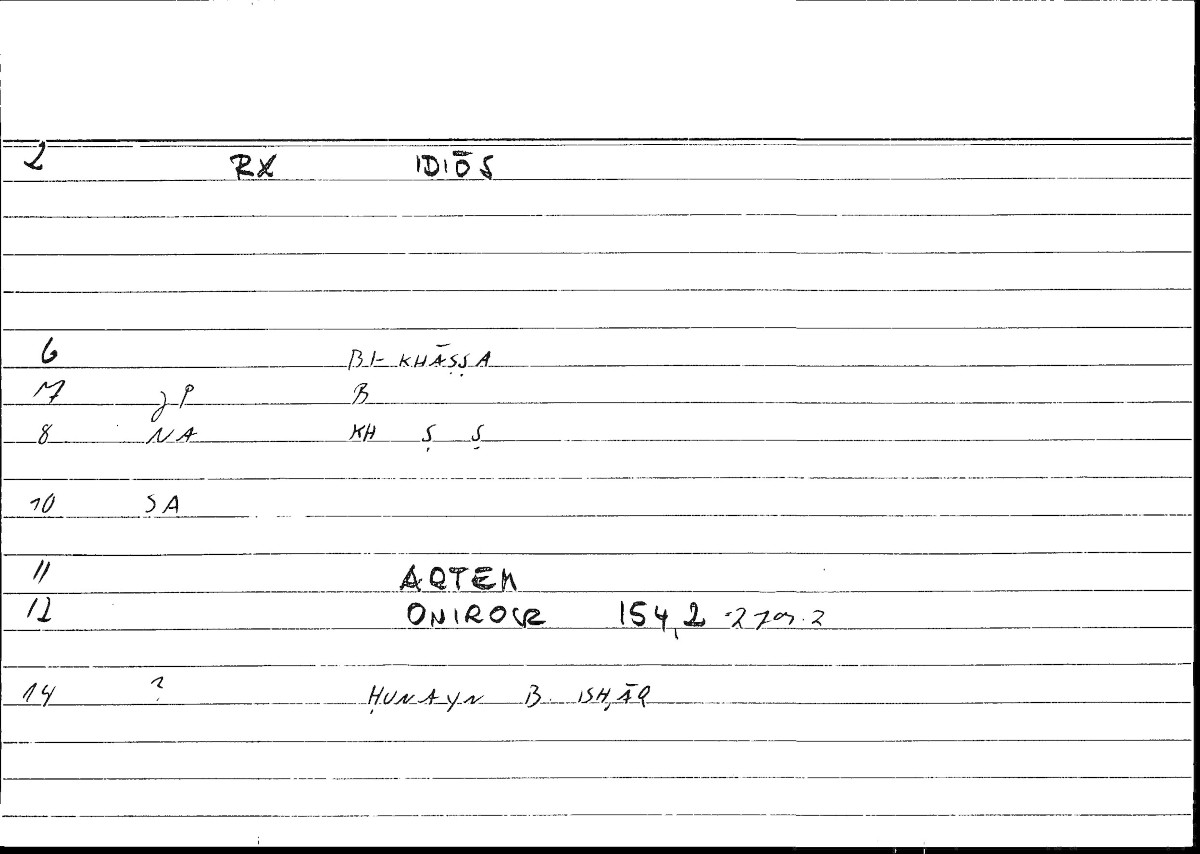 2 RX IDIŌS
6 BI- KHĀṢṢA
7 JP B
8 NA KH Ṣ Ṣ
10 SA
11 ARTEM
12 ONIROCR 154,2
14 ? ḤUNAYN B. ISḤĀQ